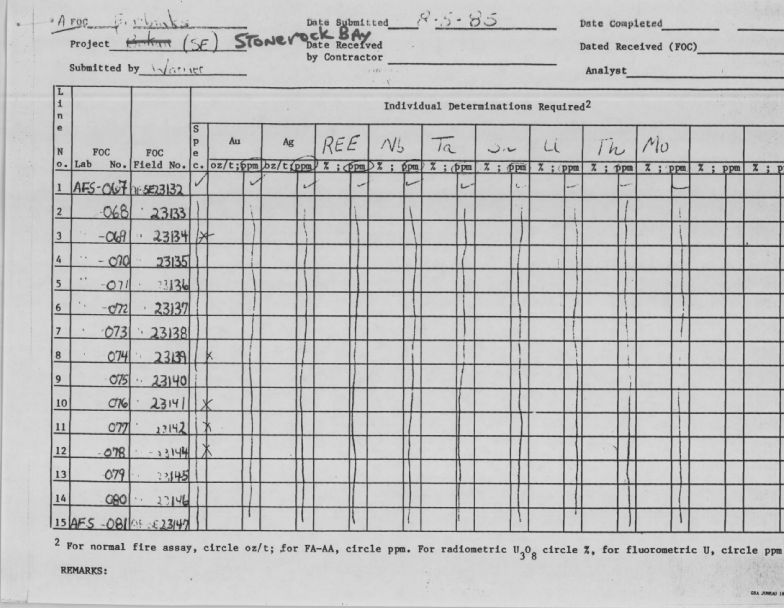 A FOC Fairbanks Date Submitted 8-5-85 Date Completed
Project (SE) STONEROCK BAY Date Received by Contractor Dated Received (FOC)
Submitted by Warner Analyst
Individual Determinations Required2
Line No. FOC Lab No. FOC Field No. Spec. Au Ag REE Nb Ta Sn U Th Mo
oz/t;ppm oz/t;ppm % ; ppm % ; ppm % ; ppm % ; ppm % ; ppm % ; ppm % ; ppm % ; ppm % ; p
1 AFS-067 SE23132 ✓ ✓ ✓ ✓ ✓ ✓ ✓ ✓ ✓
2 -068 23133
3 -069 23134 X
4 -070 23135
5 -071 23136
6 -072 23137
7 073 23138
8 074 23139 x
9 075 23140
10 076 23141 X
11 077 23142 X
12 -078 23144 X
13 -079 23145
14 080 23146
15 AFS -081 SE23147
2 For normal fire assay, circle oz/t; for FA-AA, circle ppm. For radiometric U3O8 circle %, for fluorometric U, circle ppm
REMARKS: